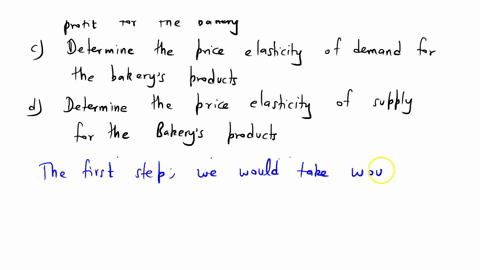 profit for the bakery
c) Determine the price elasticity of demand for
the bakery's products
d) Determine the price elasticity of supply
for the Bakery's products
The first step; we would take wou